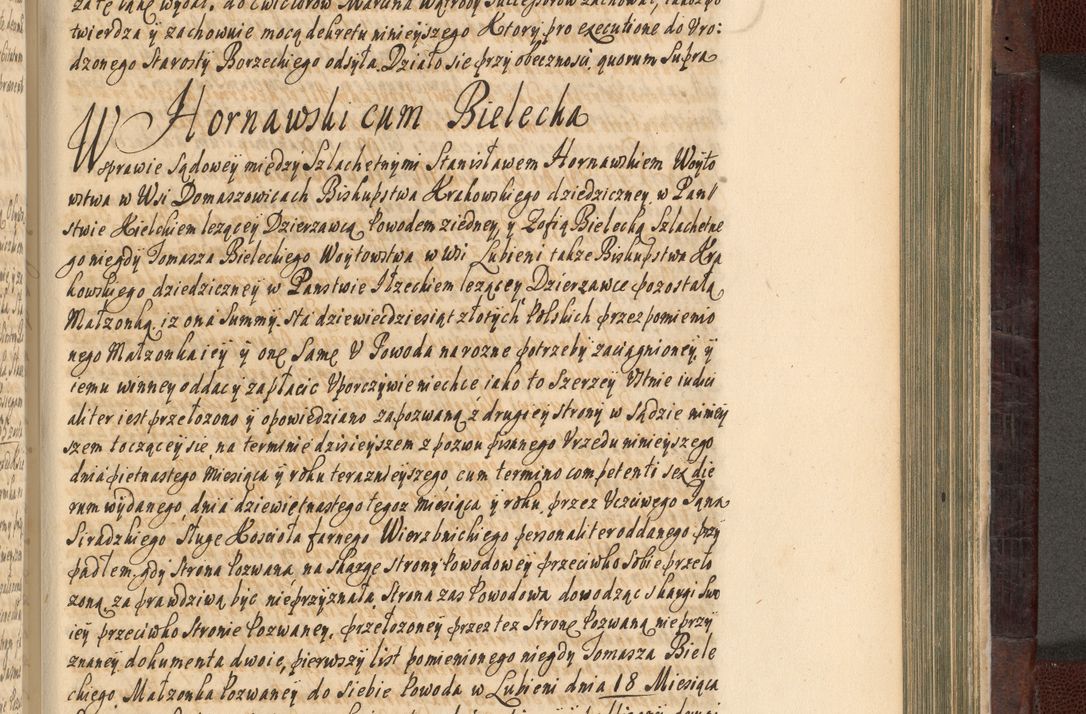 twierdza y zachownie mocą dekretu ninieyszego Ktory pro executione do Uro:
dzonego Starosty Borzeckiego odsyła. Działo się przy obecznosci quorum Supra
Hornawski cum Bielecka
W Sprawie Sądowey między Szlachetnymi Stanisławem Hornawskiem Woyto
wstwa w Wsi Domaszowicach Biskupstwa Krakowskiego dziedziczney w Pan//
stwie Kielckiem lezącey Dzierzawcą Powodem ziedney, y Zofią Bielecką Szlachetne
go niegdy Tomasza Bieleckiego Woytowstwa w wsi Lubieni takze Biskupstwa Kra
kowskiego dziedziczney w Panstwie Iłzeckiem lezącey Dzierzawce pozostałą
Małzonką iz ona Summy Sta dziewiecdziesiąt złotych Polskich przez pomienio
nego Małzonka iey y onę Samę U Powoda na rozne potrzeby zaciągnioney, y
iemu winney oddac y zapłacic Uporczywie niechce iako to Szerzey Ustnie iudici
aliter iest przełozono y opowiedziano zapozwaną z drugiey Strony w Sądzie niniey
szem toczącey się, na terminie dzisieyszem z pozwu pisanego Urzedu ninieyszego
dnia pietnastego Miesiąca y roku terazniejszego cum termino competenti sex die
rum wydanego, dnia dziewiętnastego tegoz miesiąca y roku, przez Uczciwego Jana
Siradzkiego Sługe Koscioła farnego Wierzbnickiego personaliter oddanego przy
padłem, gdy Strona Pozwana, na Skargę Strony Powodowey przeciwko Sobie przeło
zoną, za prawdziwą byc nieprzyznała, Strona zas Powodowa dowodząc skargi Swo
iey przeciwko Stronie Pozwaney, przełozoney przez tez Stronę Pozwaną nie przy
znaney dokumenta dwoie, pierwszy list pomienionego niegdy Tomasza Biele
ckiego Małzonka Pozwaney do Siebie Powoda w Lubieni dnia 18 Miesiąca